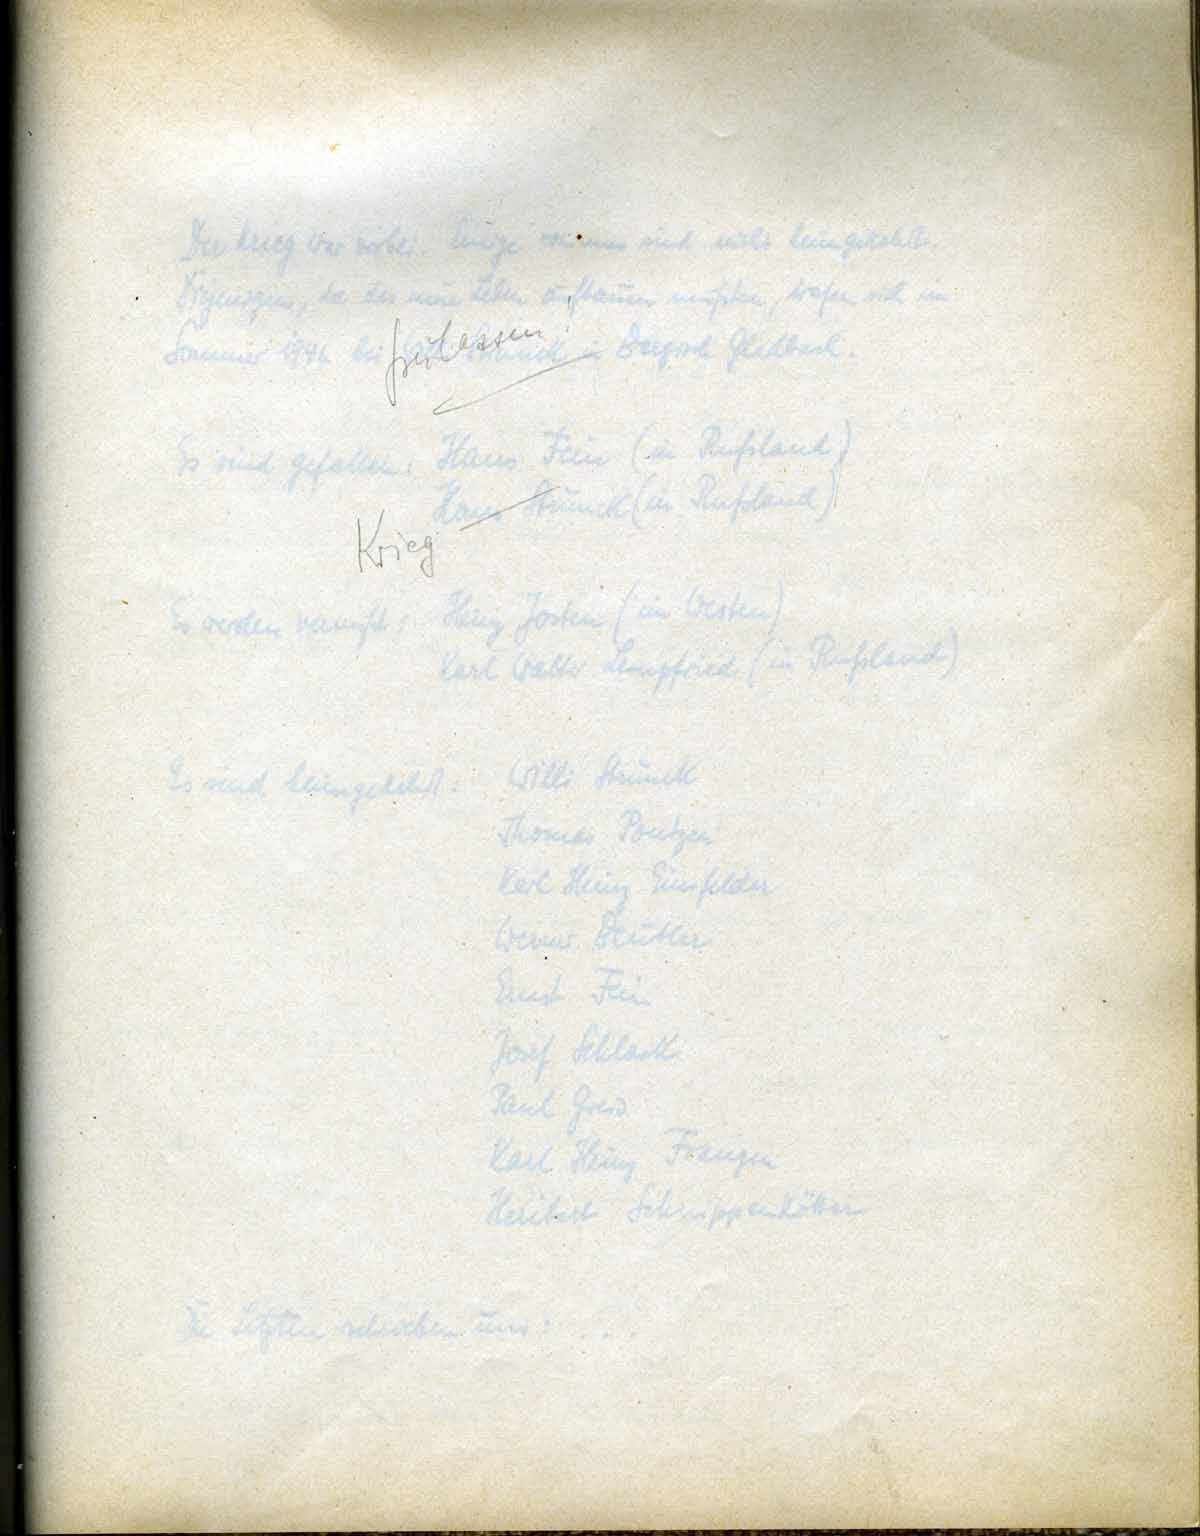 Der Krieg war vorbei. Einige von uns sind nicht heimgekehrt.
Diejenigen, die das neue Leben aufbauen mußten, trafen sich im
Sommer 1946 bei Willi Strunck in Bergisch Gladbach.
freilassen!
Es sind gefallen: Hans Fein (in Rußland)
Hans Strunck (in Rußland)
Krieg
Es werden vermißt: Heinz Josten (im Westen)
Karl Walter Lempfried (in Rußland)
Es sind heimgekehrt: Willi Strunck
Thomas Pontzen
Karl Heinz Einsfelder
Werner Beutler
Ernst Fein
Josef Schlack
Paul
Karl Heinz Frangen
Heribert Schnippenkötter
Die Letzten schrieben uns: ....